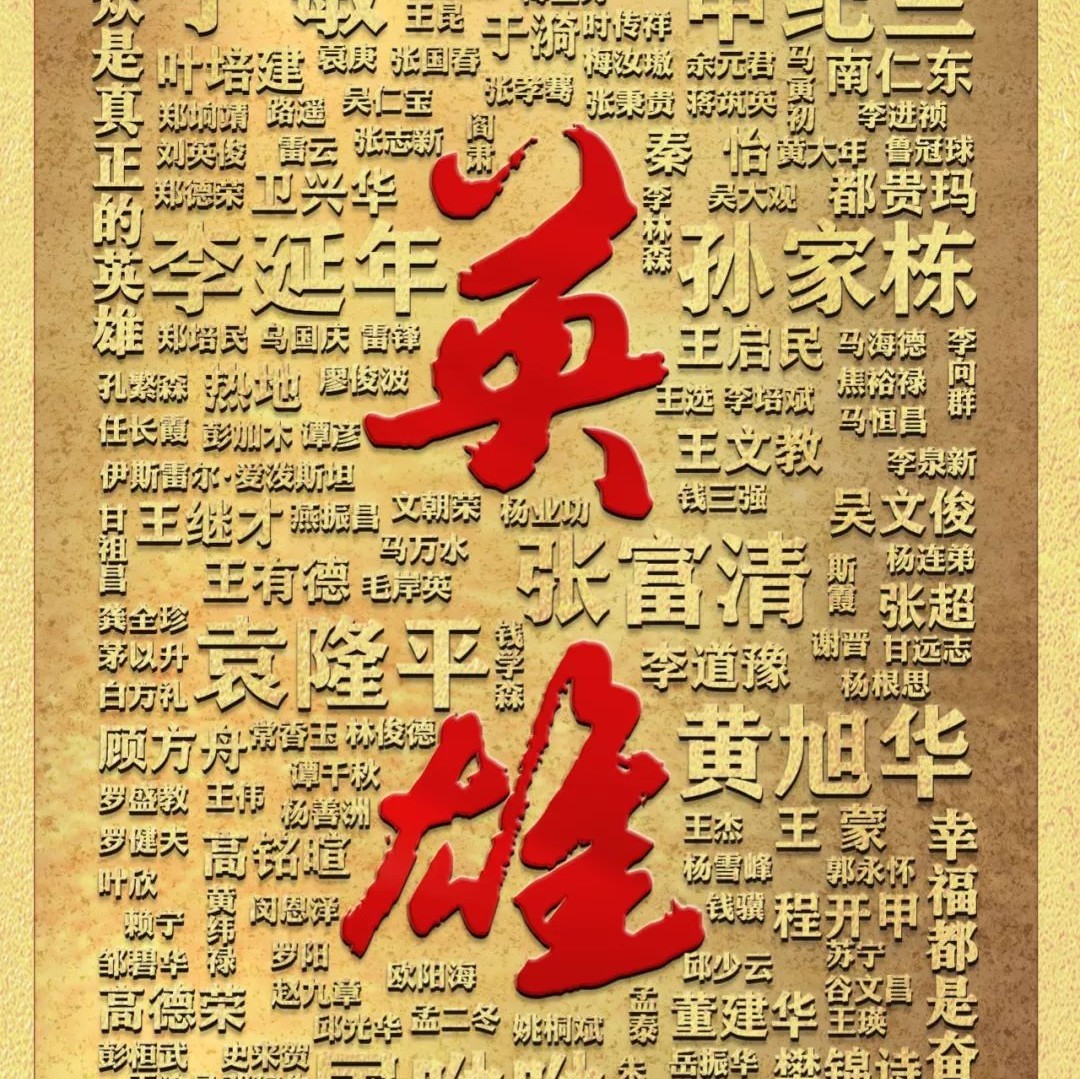 众是真正的英雄
于敏
王昆
于漪
时传祥
申纪兰
叶培建
袁庚
张国春
梅汝璈
余元君
马寅初
南仁东
郑垧靖
路遥
吴仁宝
张孝骞
张秉贵
蒋筑英
李进祯
刘英俊
雷云
张志新
阎肃
秦怡
黄大年
鲁冠球
郑德荣
卫兴华
李林森
吴大观
都贵玛
李延年
孙家栋
郑培民
乌国庆
雷锋
王启民
马海德
李向群
孔繁森
热地
廖俊波
王选
李培斌
焦裕禄
马恒昌
任长霞
彭加木
谭彦
王文教
李泉新
伊斯雷尔·爱泼斯坦
钱三强
甘祖昌
王继才
燕振昌
文朝荣
杨业功
吴文俊
马万水
张富清
斯霞
杨连弟
王有德
毛岸英
张超
龚全珍
袁隆平
钱学森
李道豫
谢晋
甘远志
茅以升
白万礼
杨根思
顾方舟
常香玉
林俊德
黄旭华
谭千秋
罗盛教
王伟
杨善洲
王杰
王蒙
幸福都是奋
罗健夫
高铭暄
杨雪峰
郭永怀
叶欣
黄纬禄
闵恩泽
钱骥
程开甲
赖宁
邹碧华
罗阳
欧阳海
邱少云
苏宁
高德荣
赵九章
孟泰
董建华
谷文昌
王瑛
邱光华
孟二冬
姚桐斌
彭桓武
史来贺
岳振华
樊锦诗
英雄